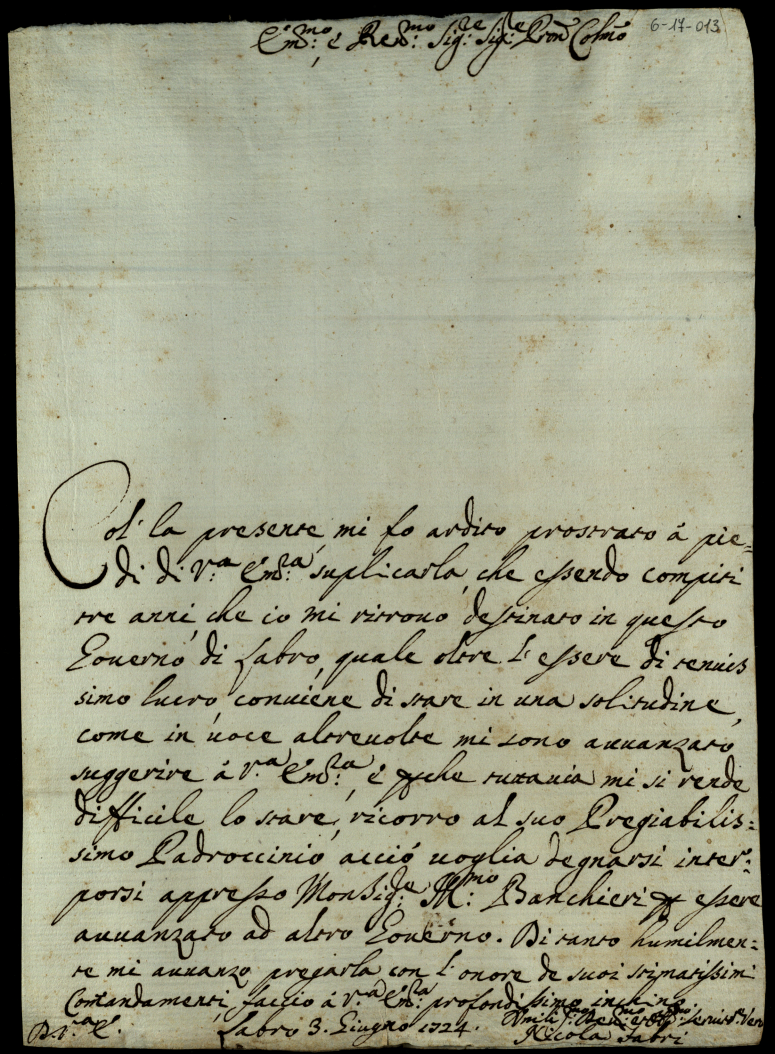 6-17-013
Em.mo e Re.mo Sig.re Sig.re Pron Colmo
Col la presente mi fo ardito prostrato à pie=
di di V.ra Em.za suplicarla, che essendo compiti
tre anni, che io mi ritrouo destinato in questo
Gouerno di Fabro, quale oltre l'essere di tenuis
simo lucro, conuiene di stare in una solitudine,
come in uoce altreuolte mi sono auuanzato
suggerire à V.ra Em.za, è che tuttauia mi si rende
difficile lo stare, ricorro al suo Pregiabilis=
simo Padroccinio acciò uoglia degnarsi inter=
porsi appresso Monsig.re Ill.mo Banchieri essere
auuanzato ad altro Gouerno. Di tanto humilmen=
te mi auuanzo pregarla con l'onore de suoi stimatissimi
Comandamenti, faccio à V.ra Em.za profondissimo inchino
D. V.ra E. Fabro 3. Giugno 1724.
Nicola Fabri